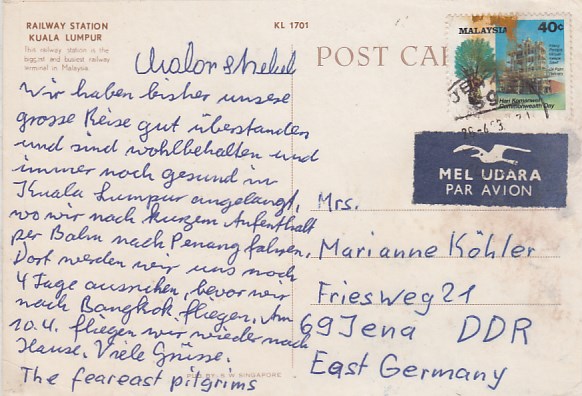 RAILWAY STATION
KUALA LUMPUR
This railway station is the
biggest and busiest railway
terminal in Malaysia
KL 1701
POST CAR
MALAYSIA 40c
Hari Komanwel
Commonwealth Day
MEL UDARA
PAR AVION
Wir haben bisher unsere
grosse Reise gut überstanden
und sind wohlbehalten und
immer noch gesund in
Kuala Lumpur angelangt,
wo wir nach kurzem Aufenthalt
per Bahn nach Penang fahren.
Dort werden wir uns noch
4 Tage ausruhen, bevor wir
nach Bangkok fliegen. Am
10.4. fliegen wir wieder nach
Hause. Viele Grüsse.
The feareast pilgrims
PUB. BY S.W. SINGAPORE
Mrs.
Marianne Köhler
Friesweg 21
69 Jena DDR
East Germany